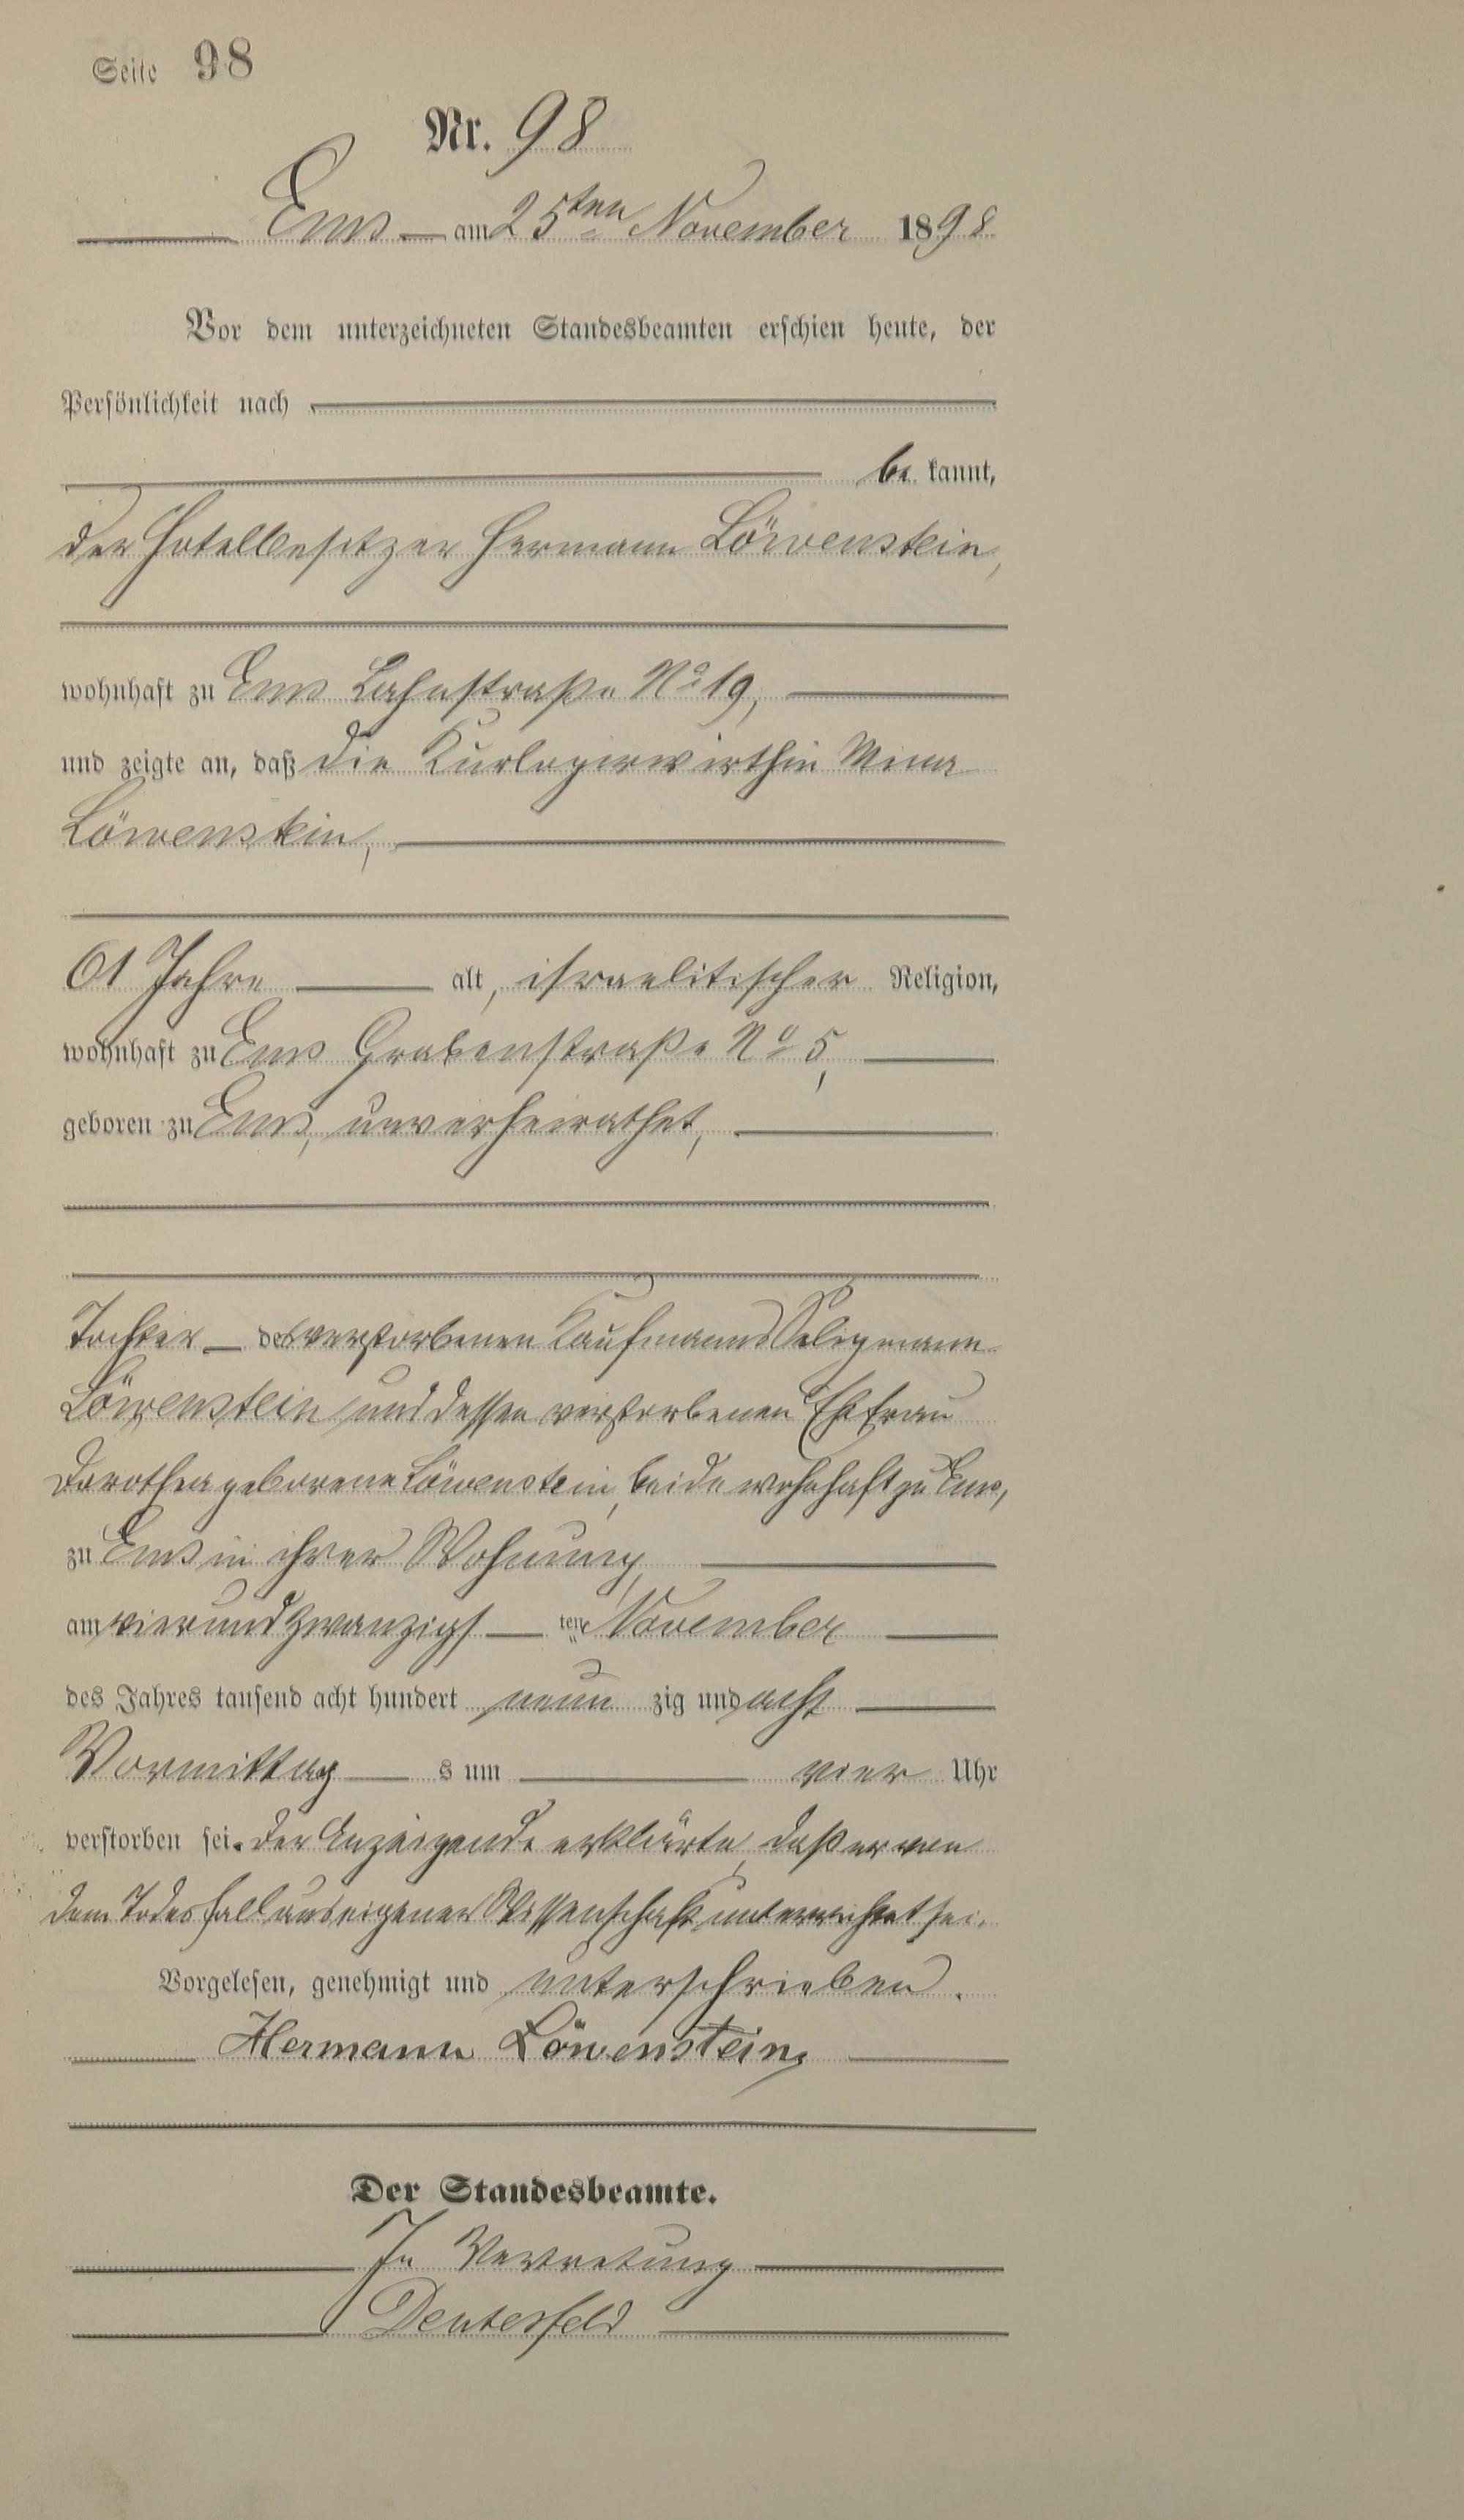 Seite 98
Nr. 98
Ems am 25ten November 1898
Vor dem unterzeichneten Standesbeamten erschien heute, der
Persönlichkeit nach
be kannt,
der Hotelbesitzer Hermann Löwenstein,
wohnhaft zu Ems Lahnstraße No 19,
und zeigte an, daß die Kurlogirwirthin Mina
Löwenstein,
61 Jahre alt, israelitischer Religion,
wohnhaft zu Ems Grabenstraße No 5,
geboren zu Ems, unverheirathet,
Tochter des verstorbenen Kaufmanns Seligmann
Löwenstein und dessen verstorbenen Ehefrau
Dorothea geborene Löwenstein, beide wohnhaft zu Ems,
zu Ems in ihrer Wohnung,
am vierundzwanzigs ten November
des Jahres tausend acht hundert neun zig und acht
Vormittag s um vier Uhr
verstorben sei. Der Anzeigende erklärte, daß er von
dem Todesfall aus eigener Wissenschaft unterrichtet sei.
Vorgelesen, genehmigt und unterschrieben.
Hermann Löwenstein
Der Standesbeamte.
In Vertretung